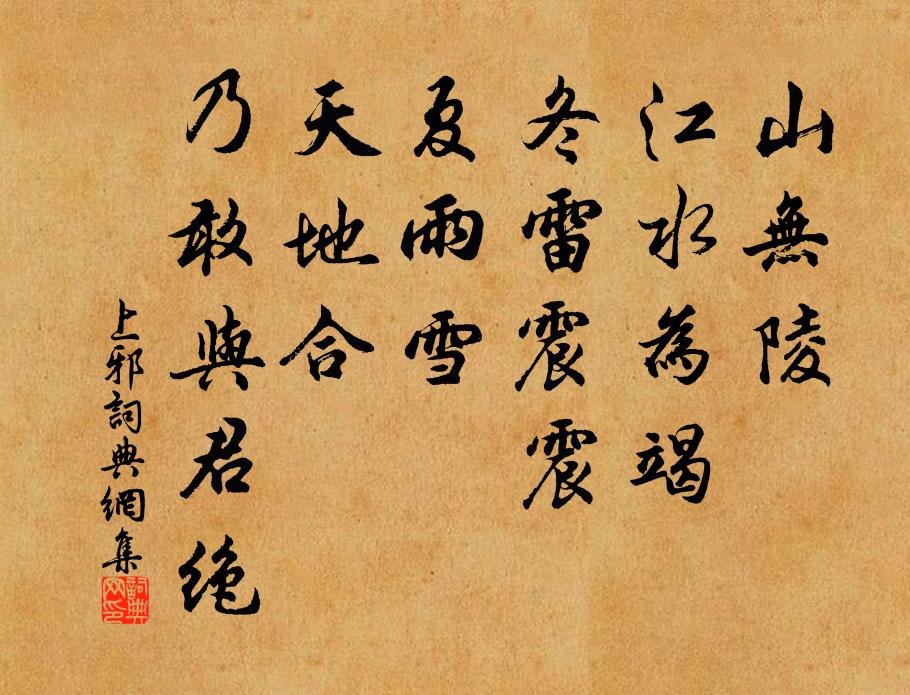 山無陵
江水為竭
冬雷震震
夏雨雪
天地合
乃敢與君绝
上邪詞典網集
詞典网印